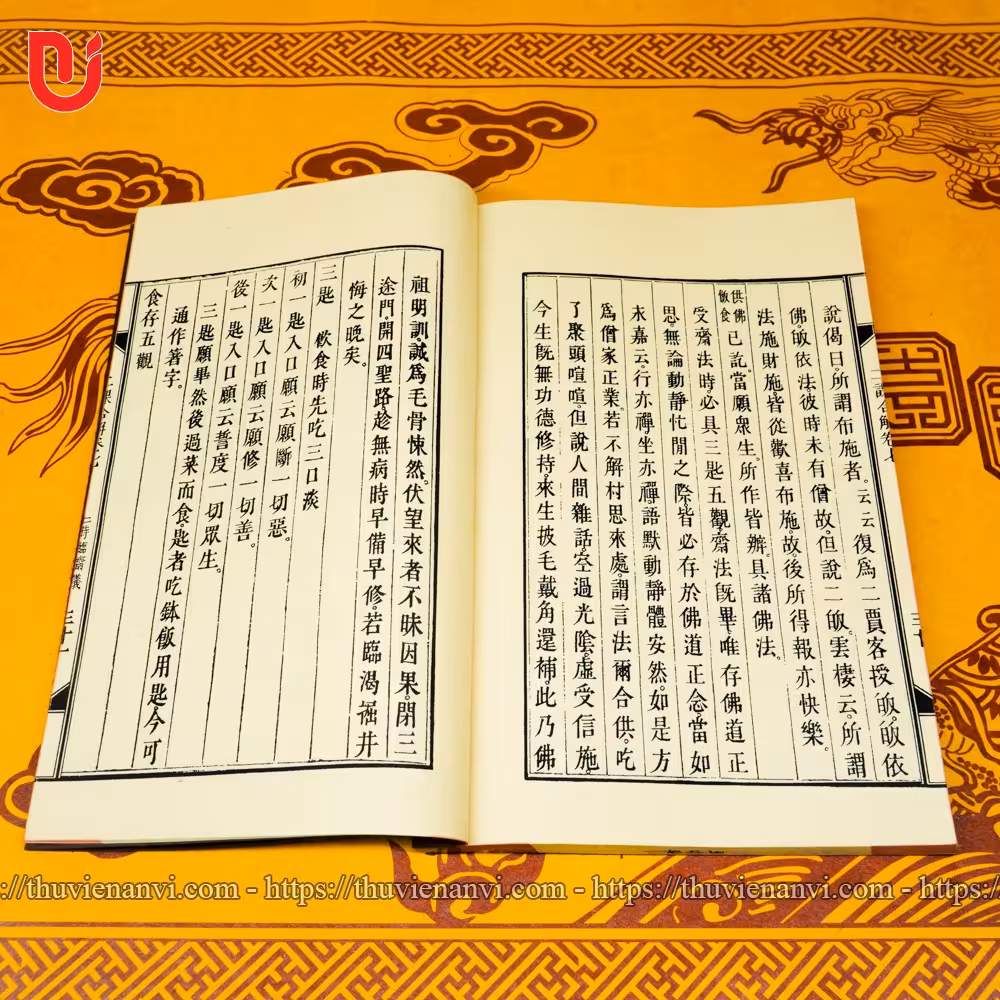 說偈曰。所謂布施者。云云復爲二賈客授皈。皈依
佛。皈依法彼時未有僧故。但說二皈。雲棲云。所謂
法施財施皆從歡喜布施。故後所得報亦快樂。
供佛
飯食
已訖。當願衆生。所作皆辦。具諸佛法。
受齋法時必具三匙五觀。齋法旣畢。唯存佛道正
思。無論動靜忙閒之際。皆必存於佛道正念。當如
永嘉云。行亦禪坐亦禪。語默動靜體安然。如是方
爲僧家正業。若不解村思來處。謂言法爾合供。吃
了聚頭喧喧。但說人間雜話。空過光陰。虛受信施。
今生旣無功德修持。來生披毛戴角還補。此乃佛
二課合解卷七
三十
祖明訓。誠爲毛骨悚然。伏望來者不昧因果。閉三
途門。開四聖路。趁無病時早備早修。若臨渴掘井
悔之晚矣。
三匙 飲食時先吃三口淡
初一匙入口願云願斷一切惡。
次一匙入口願云願修一切善。
後一匙入口願云誓度一切眾生。
三匙願畢然後過菜而食。匙者吃鉢飯用匙。今可
通作箸字。
食存五觀
二課合解卷七
二時臨齋儀
三十一
https://thuvienanvi.com - https://thuvienanvi.com - https://thuvienanvi.com - https://